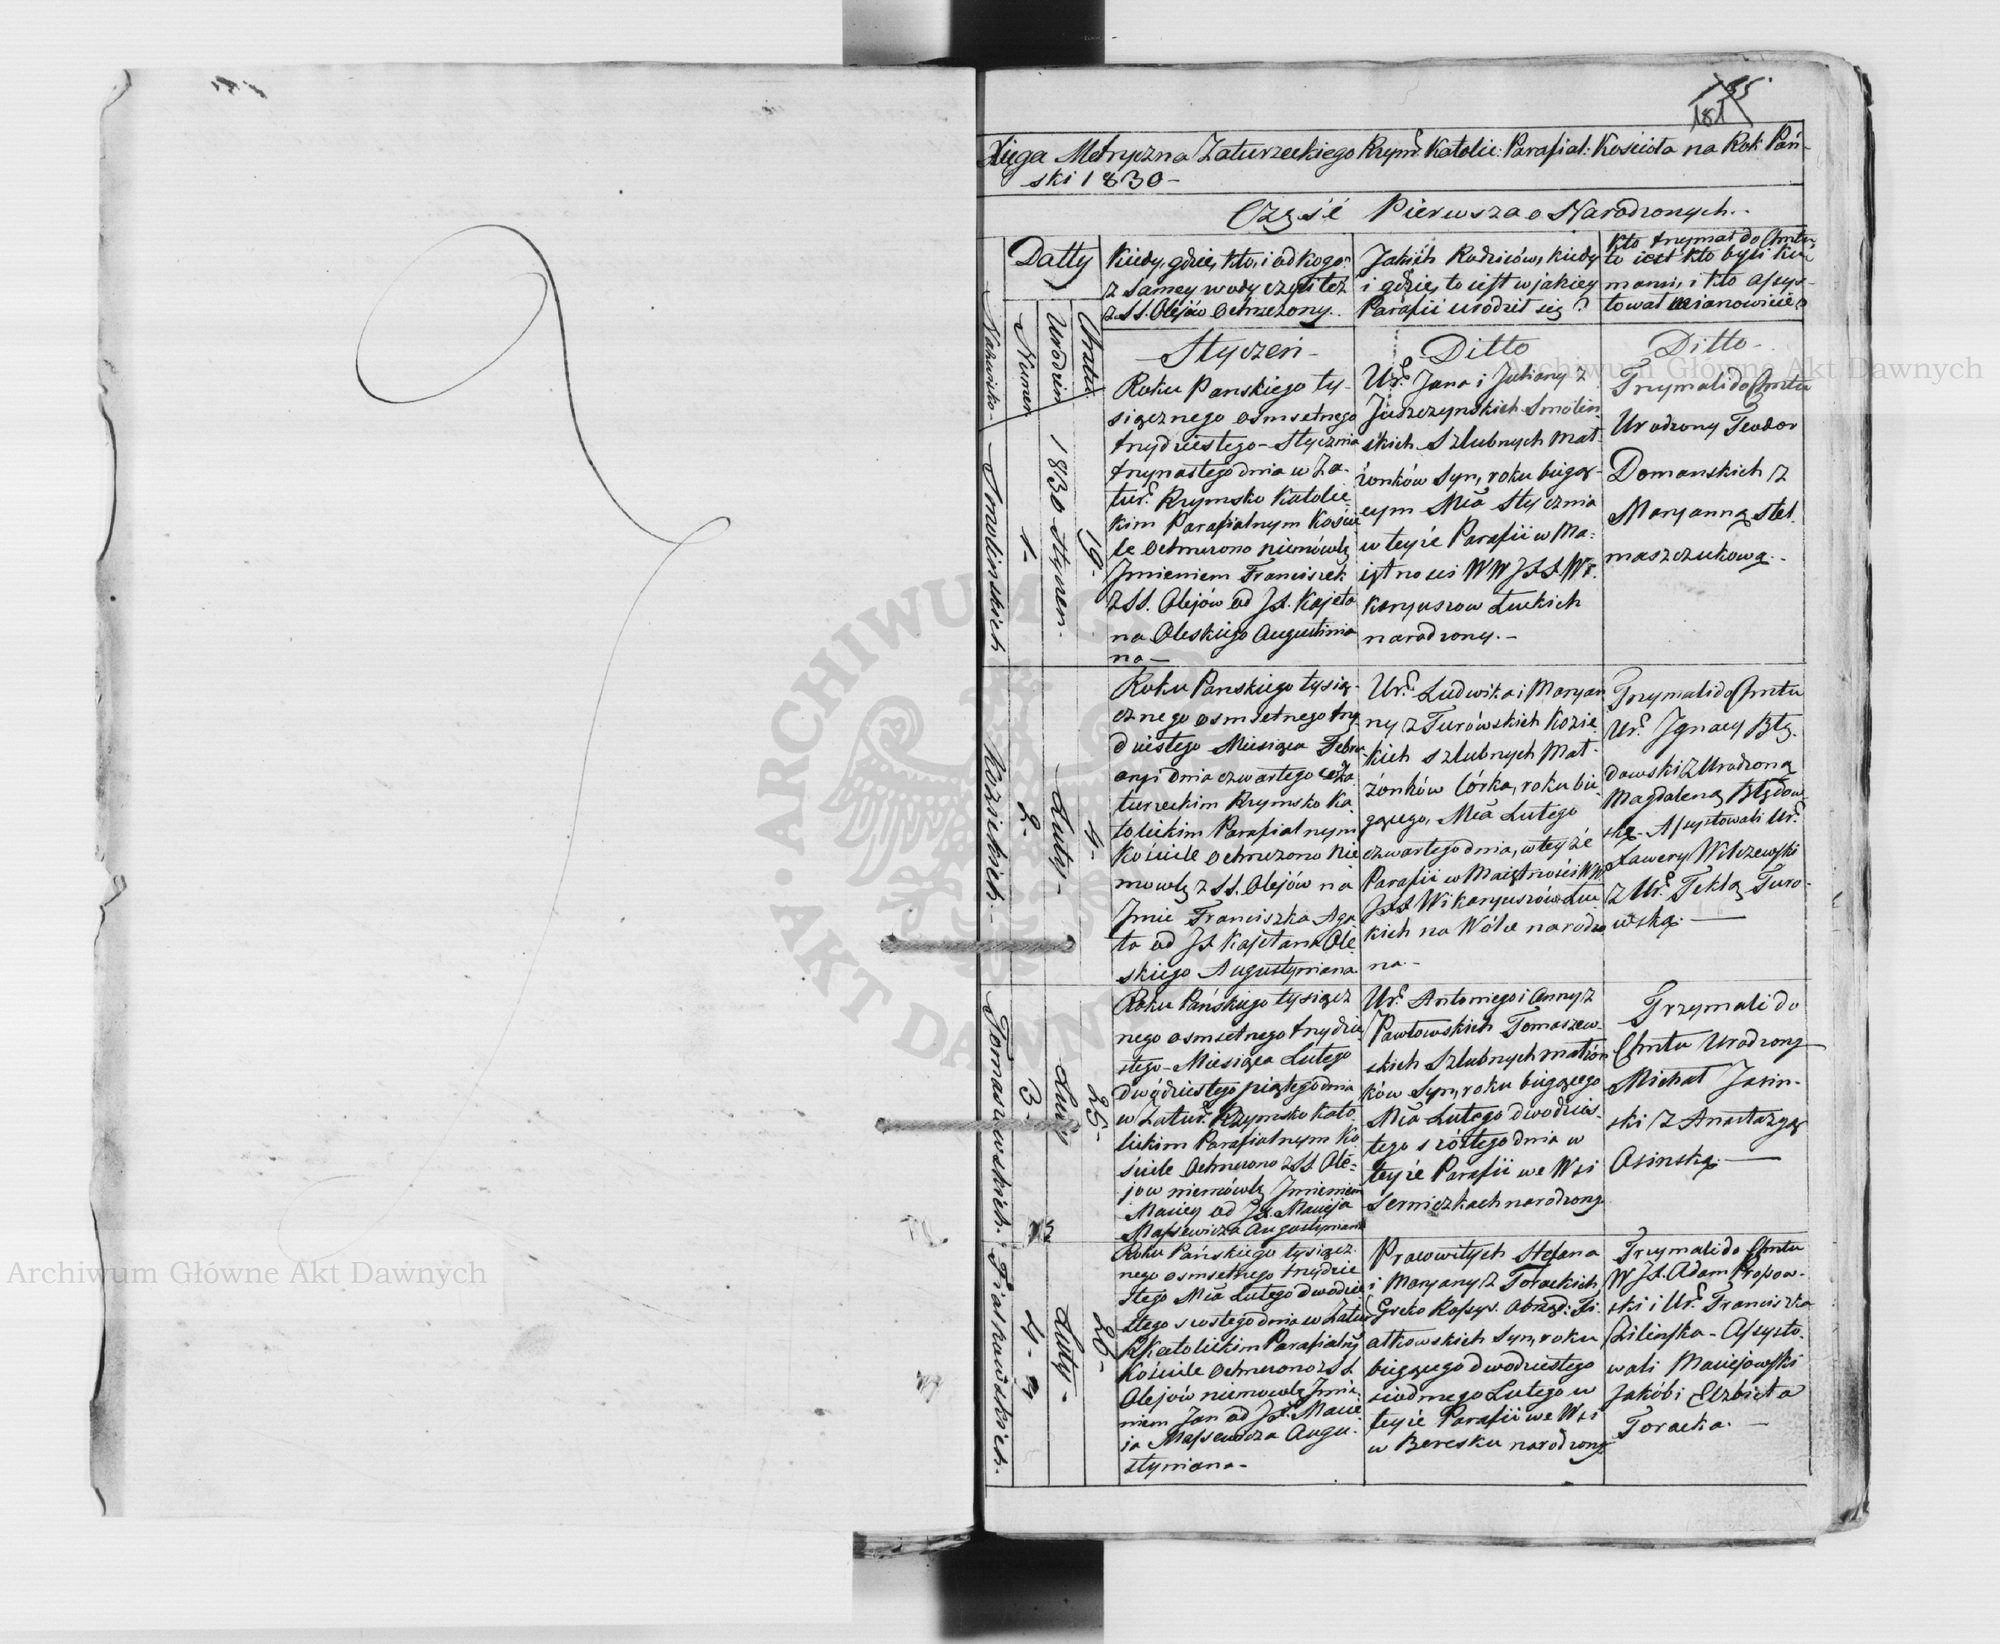 185
181
Xięga Metryczna Zaturzeckiego Rzym: Katolic: Parafial: Kościoła na Rok Pań-
ski 1830 -
Część Pierwsza o Narodzonych.
Datty
Nazwisko
Numer
Urodzin
Chrztu
Kiedy, gdzie, kto, i od kogo
z samey wody czyli też
z SS. Olejów Ochrzczony.
Jakich Rodziców, kiedy
i gdzie, to iest w jakiey
Parafii urodził się?
Kto trzymał do Chrztu
to iest kto byli Ku-
mami, i kto assys-
tował mianowicie?
Smolinskich
1-
1830 Styczen.
19.
- Styczeń -
Roku Panskiego ty-
siącznego osmsetnego
trzydziestego - Stycznia
trzynastego dnia w Za-
tur: Rzymsko Katolic-
kim Parafialnym Koście
le Ochrzczono niemówlę
Jmieniem Franciszek
z SS. Olejów od JX. Kajeta
na Oleskiego Augustinia
na -
Ditto
Ur: Jana i Julianny z
Juszczynskich Smolin-
skich Szlubnych Mał-
żonków Syn, roku bieżą-
cym Mca Stycznia
w teyże Parafii w Ma-
iętnosci WW JXX Wi-
karyuszow Łuckich
narodzony. -
Ditto -
Trzymali do Chrztu
Urodzony Teodor
Domanskich z
Maryanną Stel-
maszczukową. -
Kozieckich. -
2-
Luty -
4 -
Roku Panskiego tysią-
cznego osmsetnego trzy-
dziestego Miesiąca Febru
aryi dnia czwartego w Za
turzeckim Rzymsko Ka
tolickim Parafialnym
Kościele Ochrzczono Nie
mowlę z SS. Olejów na
Jmie Franciszka Aga
ta od JX. Kajetana Ole
skiego Augustyniana
Ur: Ludwika i Maryan
ny z Turówskich Kozie
kich szlubnych Mał-
żonków Córka, roku bie-
żącego, Mca Lutego
czwartego dnia, w teyże
Parafii w Maiętności WW
JXX Wikaryuszów Łuc
kich na Wólce narodzo
na -
Trzymali do Chrztu
Ur: Ignacy Błę-
dowski z Urodzoną
Magdaleną Błędow-
ską - Assystowali Ur:
Xawery Wilczewski
z Ur: Teklą Turo-
wską. -
Tomaszewskich.
3 -
Luty
25-
Roku Pańskiego tysiącz
nego osmsetnego trzydzie
stego - Miesiąca Lutego
dwódziestego piątego dnia
w Zatur: Rzymsko Kato
lickim Parafialnym Ko
ściele Ochrzczono z SS. Ole-
jow niemówlę Jmieniem
Maciey od JX. Macieja
Massewicza Augustyniana
Ur: Antoniego i Anny z
Pawłowskich Tomaszew-
skich Szlubnych małżon
ków Syn, roku bieżącego
Mca Lutego dwodzies-
tego szóstego dnia w
teyże Parafii we Wsi
Serniczkach narodzony
Trzymali do
Chrztu Urodzony
Michał Jasin-
ski z Anastazyą
Osinską. -
4 -
Luty -
26 -
Roku Pańskiego tysiącz-
nego osmsetnego trzydzie
stego Mca Lutego dwodzie
stego szostego dnia w Zatur
R Katolickim Parafialny
Kościele Ochrzczono z SS.
Olejów niemowlę Jmie-
niem Jan od JX. Macie
ja Massewicza Augu-
styniana -
Prawowitych Stefana
i Maryany z Torackich
Greko Rossys. Obrząd: Fi-
atkowskich Syn, roku
bieżącego dwodziestego
siodmego Lutego w
teyże Parafii we Wsi
w Beresku narodzony
Trzymali do Chrztu
W JX. Adam Propow-
ski i Ur: Franciszka
Zilińska - Assysto-
wali Maciejowski
Jakób i Elzbieta
Toracka. -
ARCHIWUM GŁÓWNE AKT DAWNYCH
Archiwum Główne Akt Dawnych
Archiwum Główne Akt Dawnych